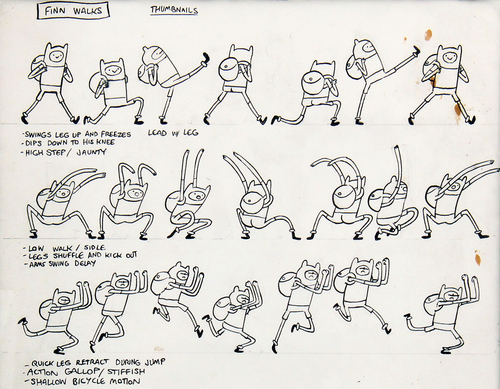 FINN WALKS
THUMBNAILS
- SWINGS LEG UP AND FREEZES
LEAD W/ LEG
- DIPS DOWN TO HIS KNEE
- HIGH STEP / JAUNTY
- LOW WALK / SIDLE
- LEGS SHUFFLE AND KICK OUT
- ARMS SWING DELAY
- QUICK LEG RETRACT DURING JUMP
- ACTION GALLOP / STIFFISH
- SHALLOW BICYCLE MOTION